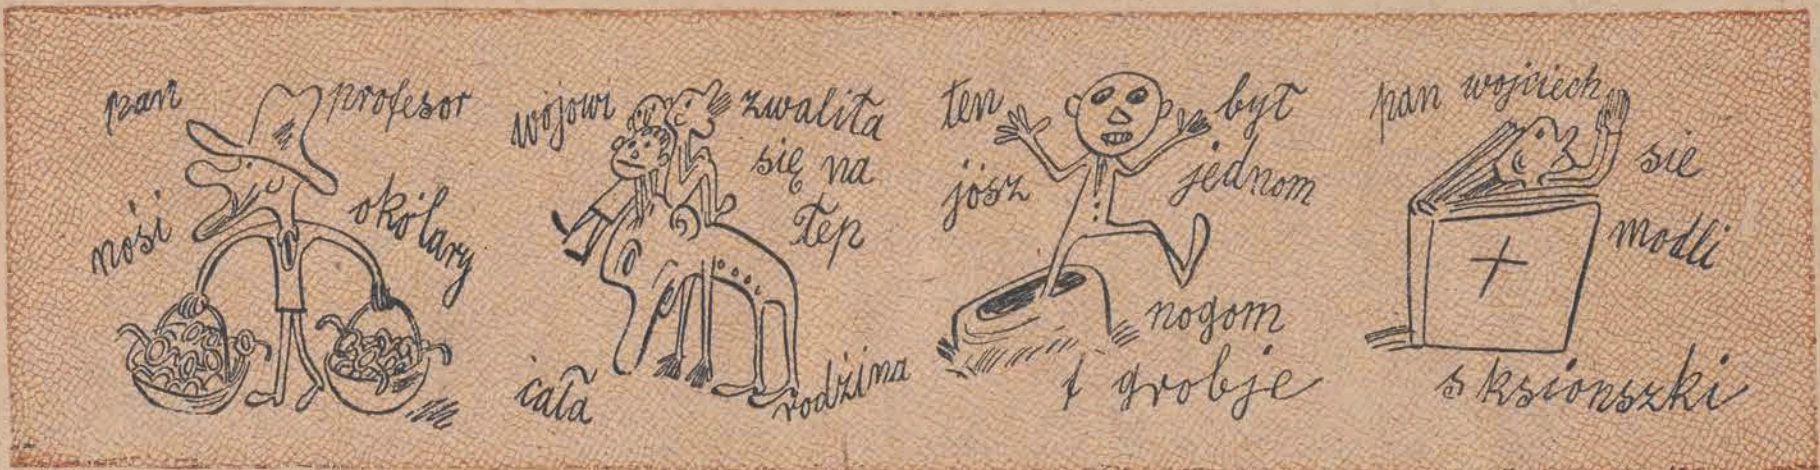 pan profesor
nośi okólary
wójowi zwaliła
się na
łep
cała rodźina
ten był
jósz jednom
nogom
f grobje
pan wojciech
sie
modli
s ksionszki